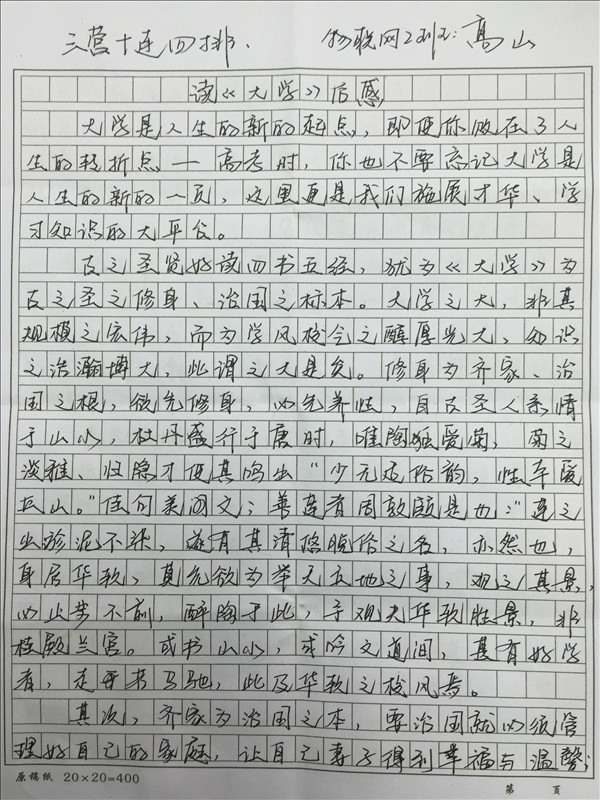 三营十连四排. 物联网2班: 高山
读《大学》后感
大学是人生的新的起点，即便你败在了人
生的转折点一高考时，你也不要忘记大学是
人生的新的一页，这里更是我们施展才华、学
习知识的大平台。
古之圣贤好读四书五经，犹为《大学》为
古之圣之修身、治国之标本。大学之大，非其
规模之宏伟，而为学风校令之醇厚光大，知识
之浩瀚博大，此谓之大是矣。修身为齐家、治
国之根，欲先修身，必先养性，自古圣人亲情
于山水，杜丹盛行于唐时，唯陶独爱菊，菊之
淡雅、归隐才使其鸣出“少无适俗韵，性本爱
丘山。”佳句美闻文；善莲者周敦颐是也：“莲之
出淤泥不染，遂有其清悠脱俗之名，亦然也，
身居华软，莫先欲为举天立地之事，观之其景，
必止步不前，醉陶于此，予观夫华软胜景，非
桂殿兰宫。或书山水，或吟文道间，甚有好学
者，走母书马驰，此及华软之校风焉。
其次，齐家为治国之本，要治国就必须管
理好自己的家庭，让自己妻子得到幸福与温馨；
原稿纸 20×20=400
第 页